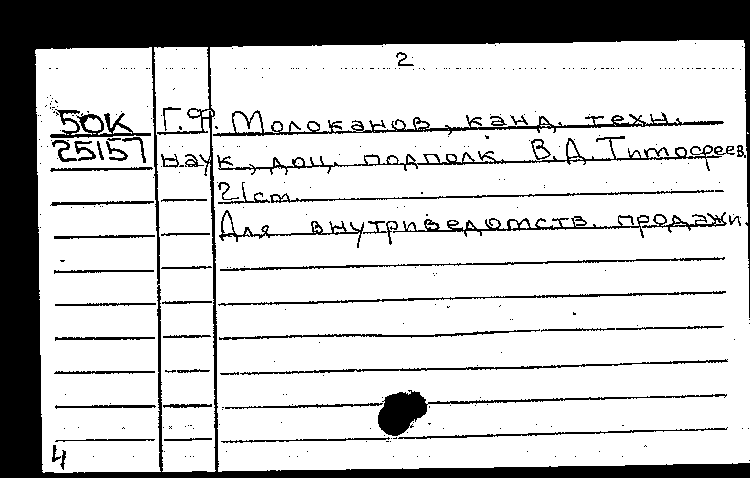 2
50К Г.Ф. Молоканов, канд. техн.
25157 наук, доц. подполк. В.Д. Тимофеев.
21 cm.
Для внутриведомств. продажи.
4